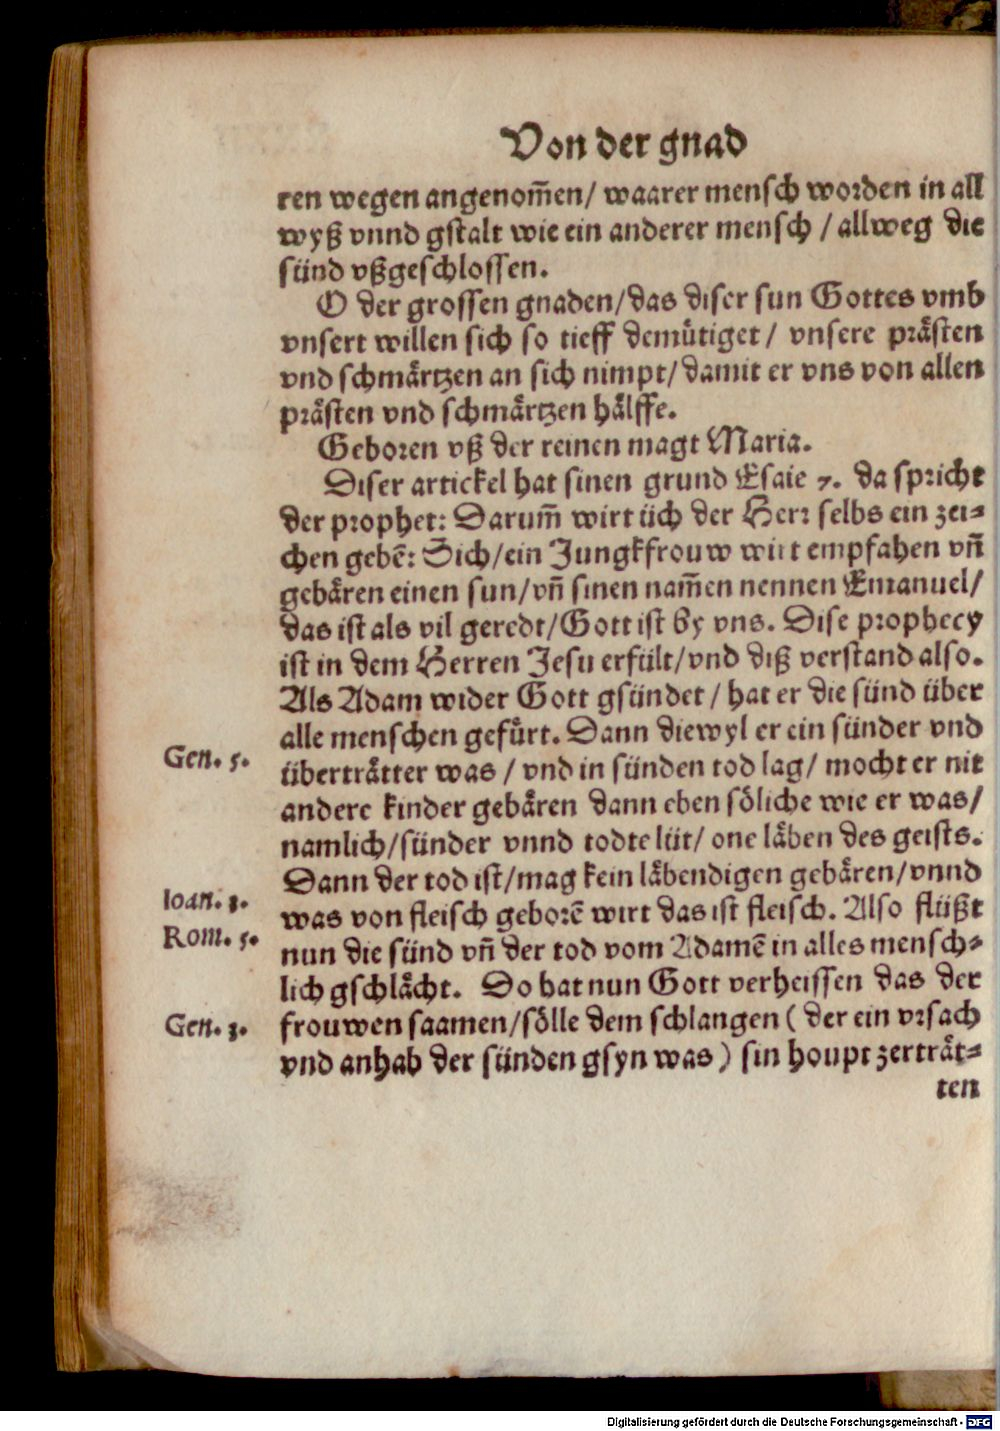 Von der gnad
ren wegen angenom̃en/ waarer mensch worden in all
wyß vnnd gstalt wie ein anderer mensch / allweg die
sünd vßgeschlossen.
O der grossen gnaden/das diser sun Gottes vmb
vnsert willen sich so tieff demuͤtiget/ vnsere praͤsten
vnd schmaͤrtzen an sich nimpt/damit er vns von allen
praͤsten vnd schmaͤrtzen haͤlffe.
Geboren vß der reinen magt Maria.
Diser artickel hat sinen grund Esaie 7. da spricht
der prophet: Darum̃ wirt üch der Herr selbs ein zei-
chen gebẽ: Sich/ein Jungkfrouw wirt empfahen vñ
gebaͤren einen sun/vñ sinen nam̃en nennen Emanuel/
das ist als vil geredt/Gott ist by vns. Dise prophecy
ist in dem Herren Jesu erfült/vnd diß verstand also.
Als Adam wider Gott gsündet / hat er die sünd über
alle menschen gefuͤrt. Dann diewyl er ein sünder vnd
Gen. 5.
übertraͤtter was / vnd in sünden tod lag/ mocht er nit
andere kinder gebaͤren dann eben soͤliche wie er was/
namlich/sünder vnnd todte lüt/ one laͤben des geists.
Dann der tod ist/mag kein laͤbendigen gebaͤren/vnnd
Ioan. 3.
was von fleisch geborẽ wirt das ist fleisch. Also flüßt
Rom. 5.
nun die sünd vñ der tod vom Adamẽ in alles mensch-
lich gschlaͤcht. So hat nun Gott verheissen das der
Gen. 3.
frouwen saamen/soͤlle dem schlangen ( der ein vrsach
vnd anhab der sünden gsyn was ) sin houpt zertraͤt-
ten
Digitalisierung gefördert durch die Deutsche Forschungsgemeinschaft - DFG